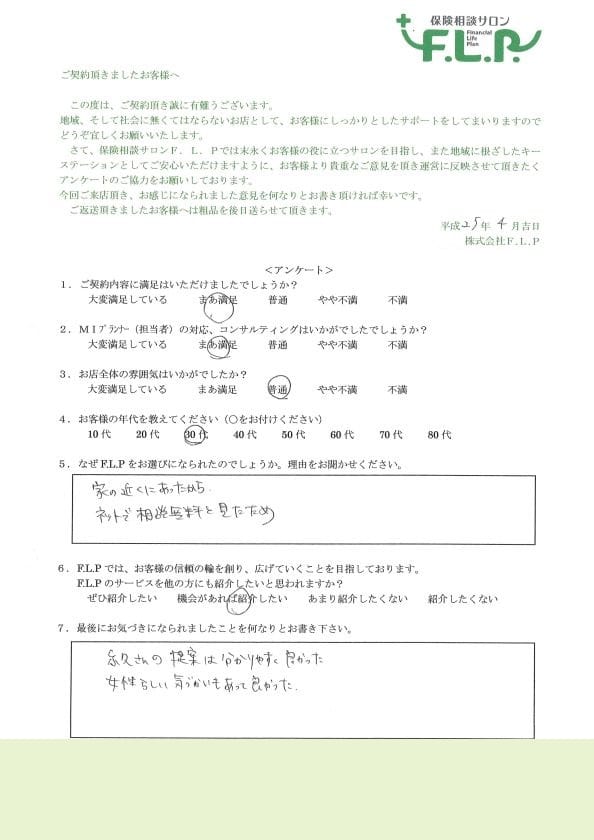 保険相談サロン
F.L.P.
Financial
Life
Plan
ご契約頂きましたお客様へ
この度は、ご契約頂き誠に有難うございます。
地域、そして社会に無くてはならないお店として、お客様にしっかりとしたサポートをしてまいりますので
どうぞ宜しくお願いいたします。
さて、保険相談サロンF．L．Pでは末永くお客様の役に立つサロンを目指し、また地域に根ざしたキー
ステーションとしてご安心いただけますように、お客様より貴重なご意見を頂き運営に反映させて頂きたく
アンケートのご協力をお願いしております。
今回ご来店頂き、お感じになられました意見を何なりとお書き頂ければ幸いです。
ご返送頂きましたお客様へは粗品を後日送らせて頂きます。
平成25年 4月吉日
株式会社F.L.P
＜アンケート＞
1．ご契約内容に満足はいただけましたでしょうか？
大変満足している まあ満足 普通 やや不満 不満
2．MIプランナー（担当者）の対応、コンサルティングはいかがでしたでしょうか？
大変満足している まあ満足 普通 やや不満 不満
3．お店全体の雰囲気はいかがでしたか？
大変満足している まあ満足 普通 やや不満 不満
4．お客様の年代を教えてください（○をお付けください）
10代 20代 30代 40代 50代 60代 70代 80代
5．なぜF.L.Pをお選びになられたのでしょうか。理由をお聞かせください。
家の近くにあったから.
ネットで相談無料と見たため
6．F.L.Pでは、お客様の信頼の輪を創り、広げていくことを目指しております。
F.L.Pのサービスを他の方にも紹介したいと思われますか？
ぜひ紹介したい 機会があれば紹介したい あまり紹介したくない 紹介したくない
7．最後にお気づきになられましたことを何なりとお書き下さい。
さんの提案は分かりやすく良かった
女性らしい気づかいもあって良かった.